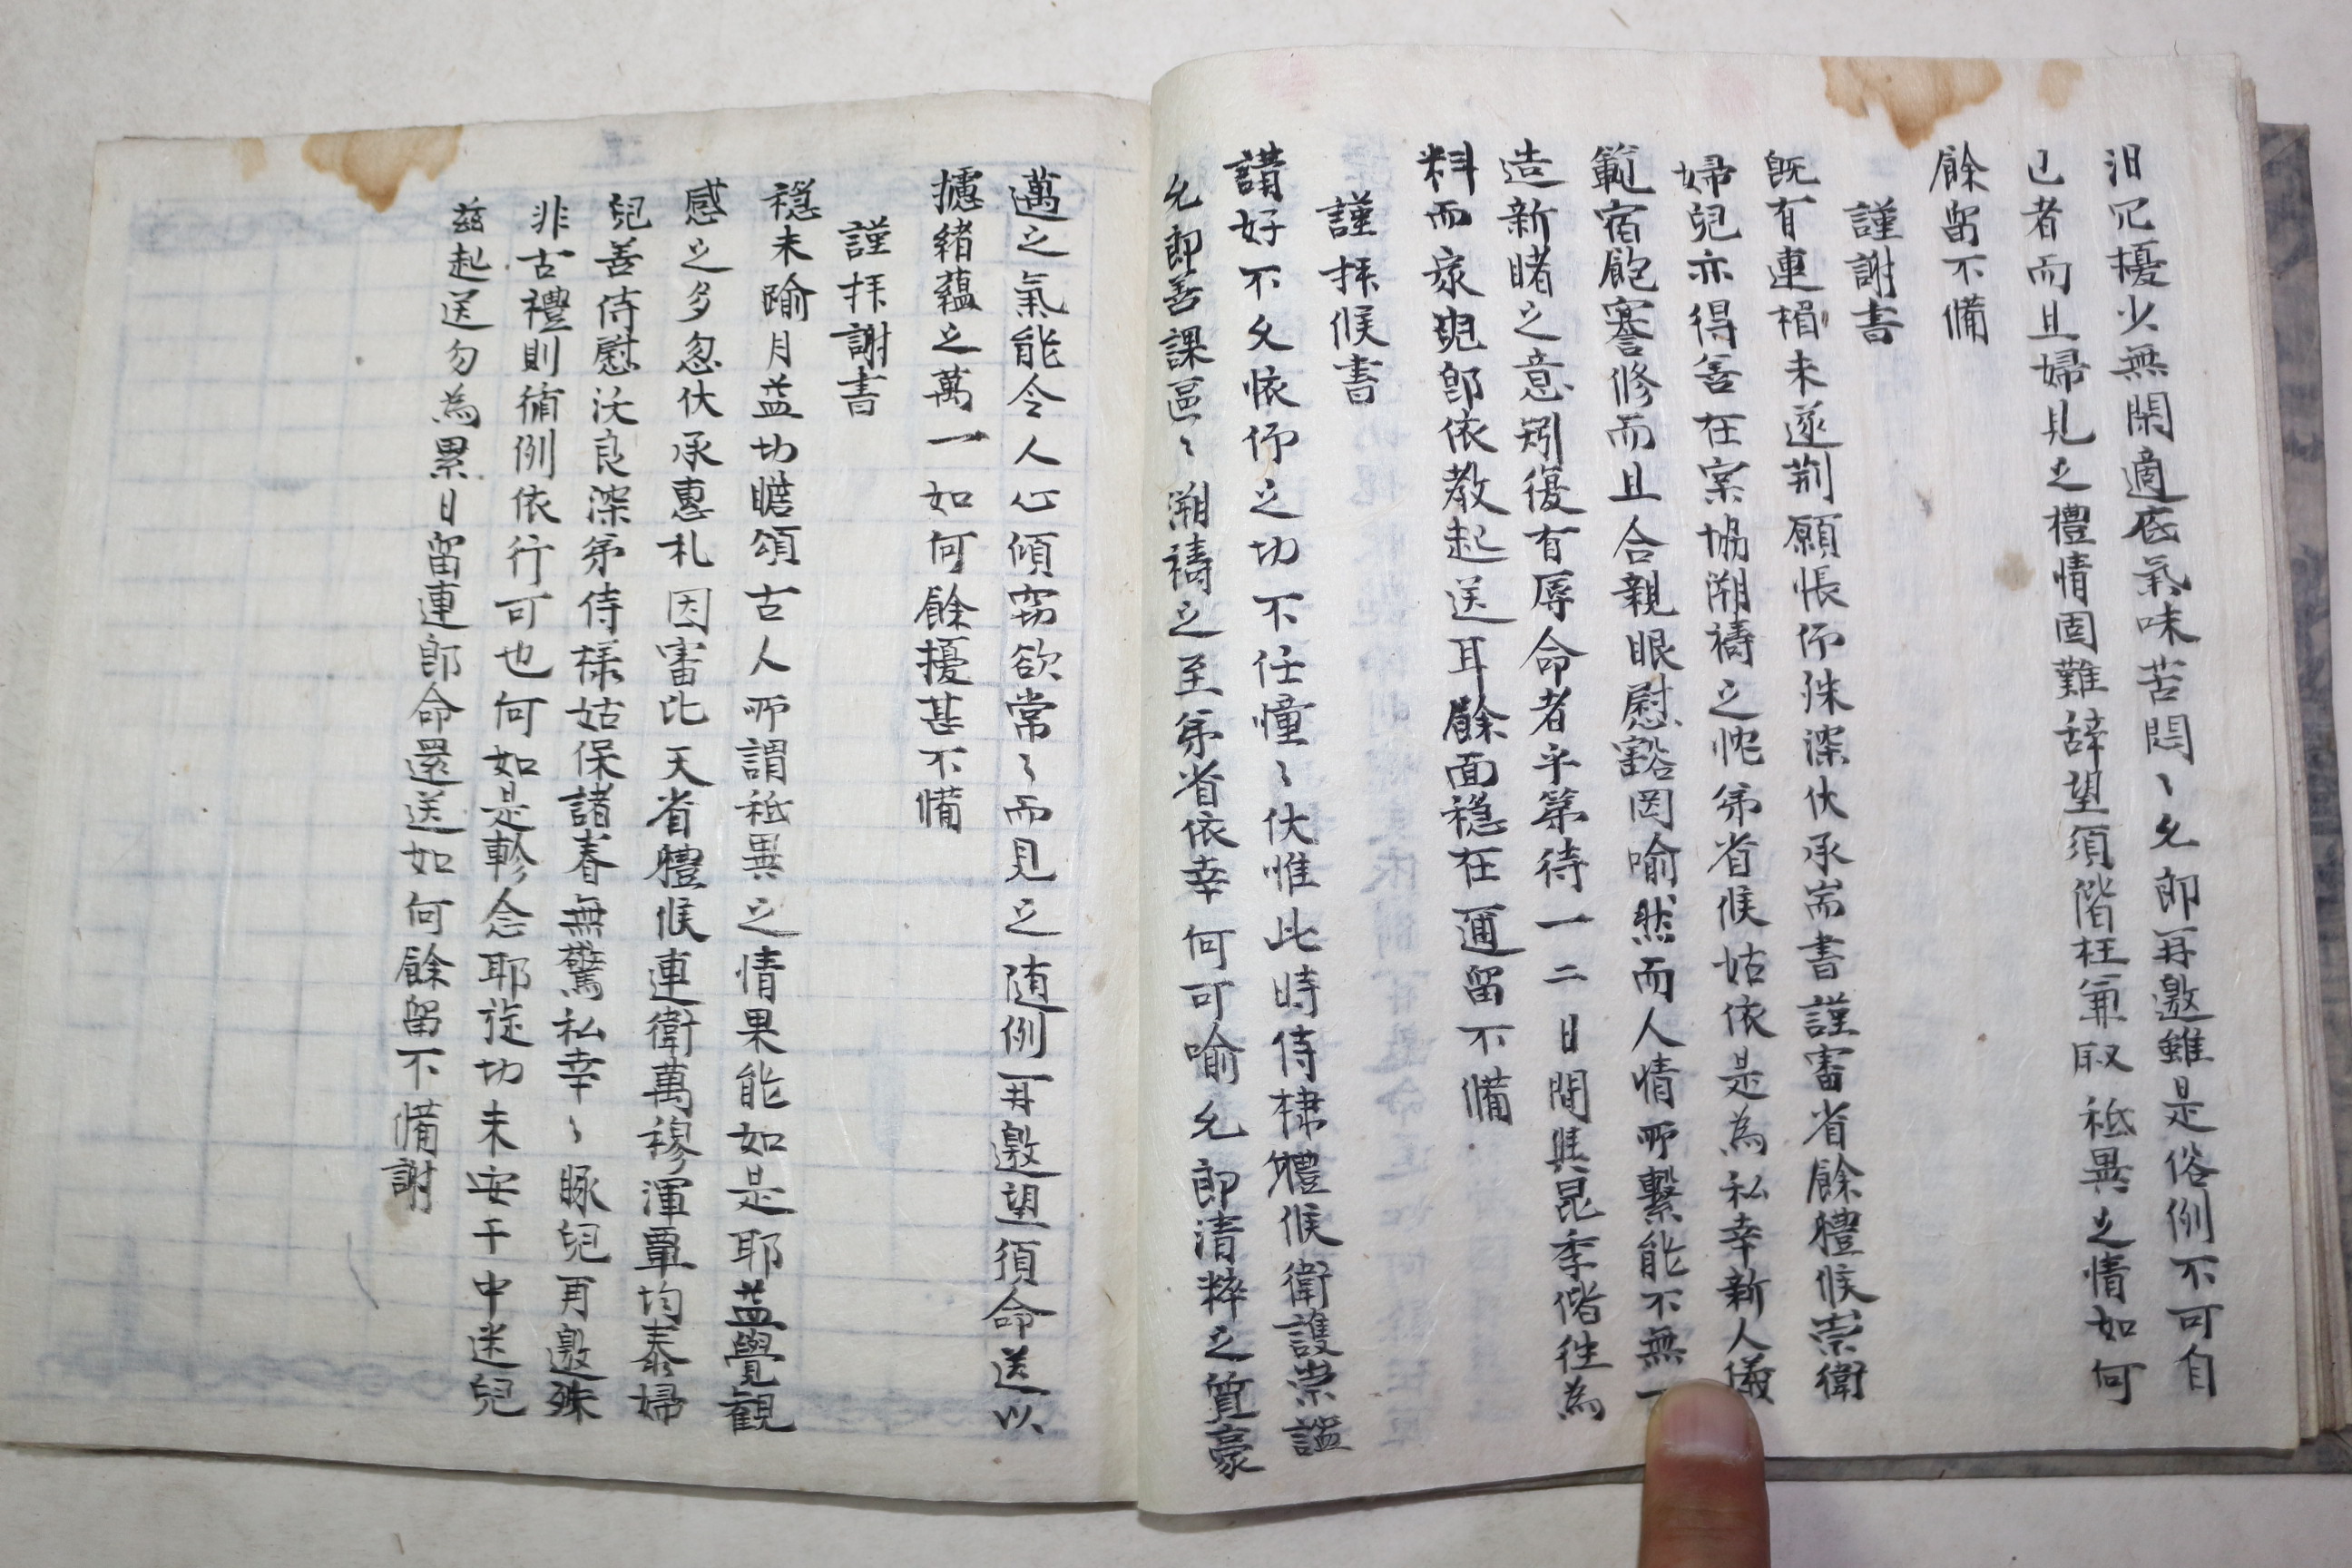 汨冗擾少無閑適底氣味苦悶〻允郎再邀雖是俗例不可自
已者而且婦見之禮情固難辞望須偕枉兼敍秪異之情如何
餘留不備
謹謝書
旣有連楣未遂荊願悵仰殊深伏承耑書謹審省餘體候崇衛
婦兒亦得善在案協溯禱之忱弟省候姑依是為私幸新人儀
範宿飽謇修而且合親眼慰豁罔喻然而人情所繫能不無一
造新睹之意矧復有辱命者乎第待一二日間與昆季偕往為
料而家兒郎依敎起送耳餘面穏在邇留不備
謹拝候書
講好不久悵仰之切不任憧〻伏惟此時侍棣體候衛護崇謐
允郎善課區〻溯禱之至弟省依幸何可喻允郎清粹之質豪
邁之氣能令人心傾窃欲常〻而見之随例再邀望須命送以
攄緒蘊之萬一如何餘擾甚不備
謹拝謝書
穏未踰月益切瞻頌古人所謂秪異之情果能如是耶益覺観
感之多忽伏承惠札因審比天省體候連衛萬穆渾覃均泰婦
兒善侍慰沃良深弟侍様姑保諸眷無驚私幸〻豚兒再邀殊
非古禮則循例依行可也何如是軫念耶旋切未安千中送兒
茲起送勿為累日留連郎命還送如何餘留不備謝